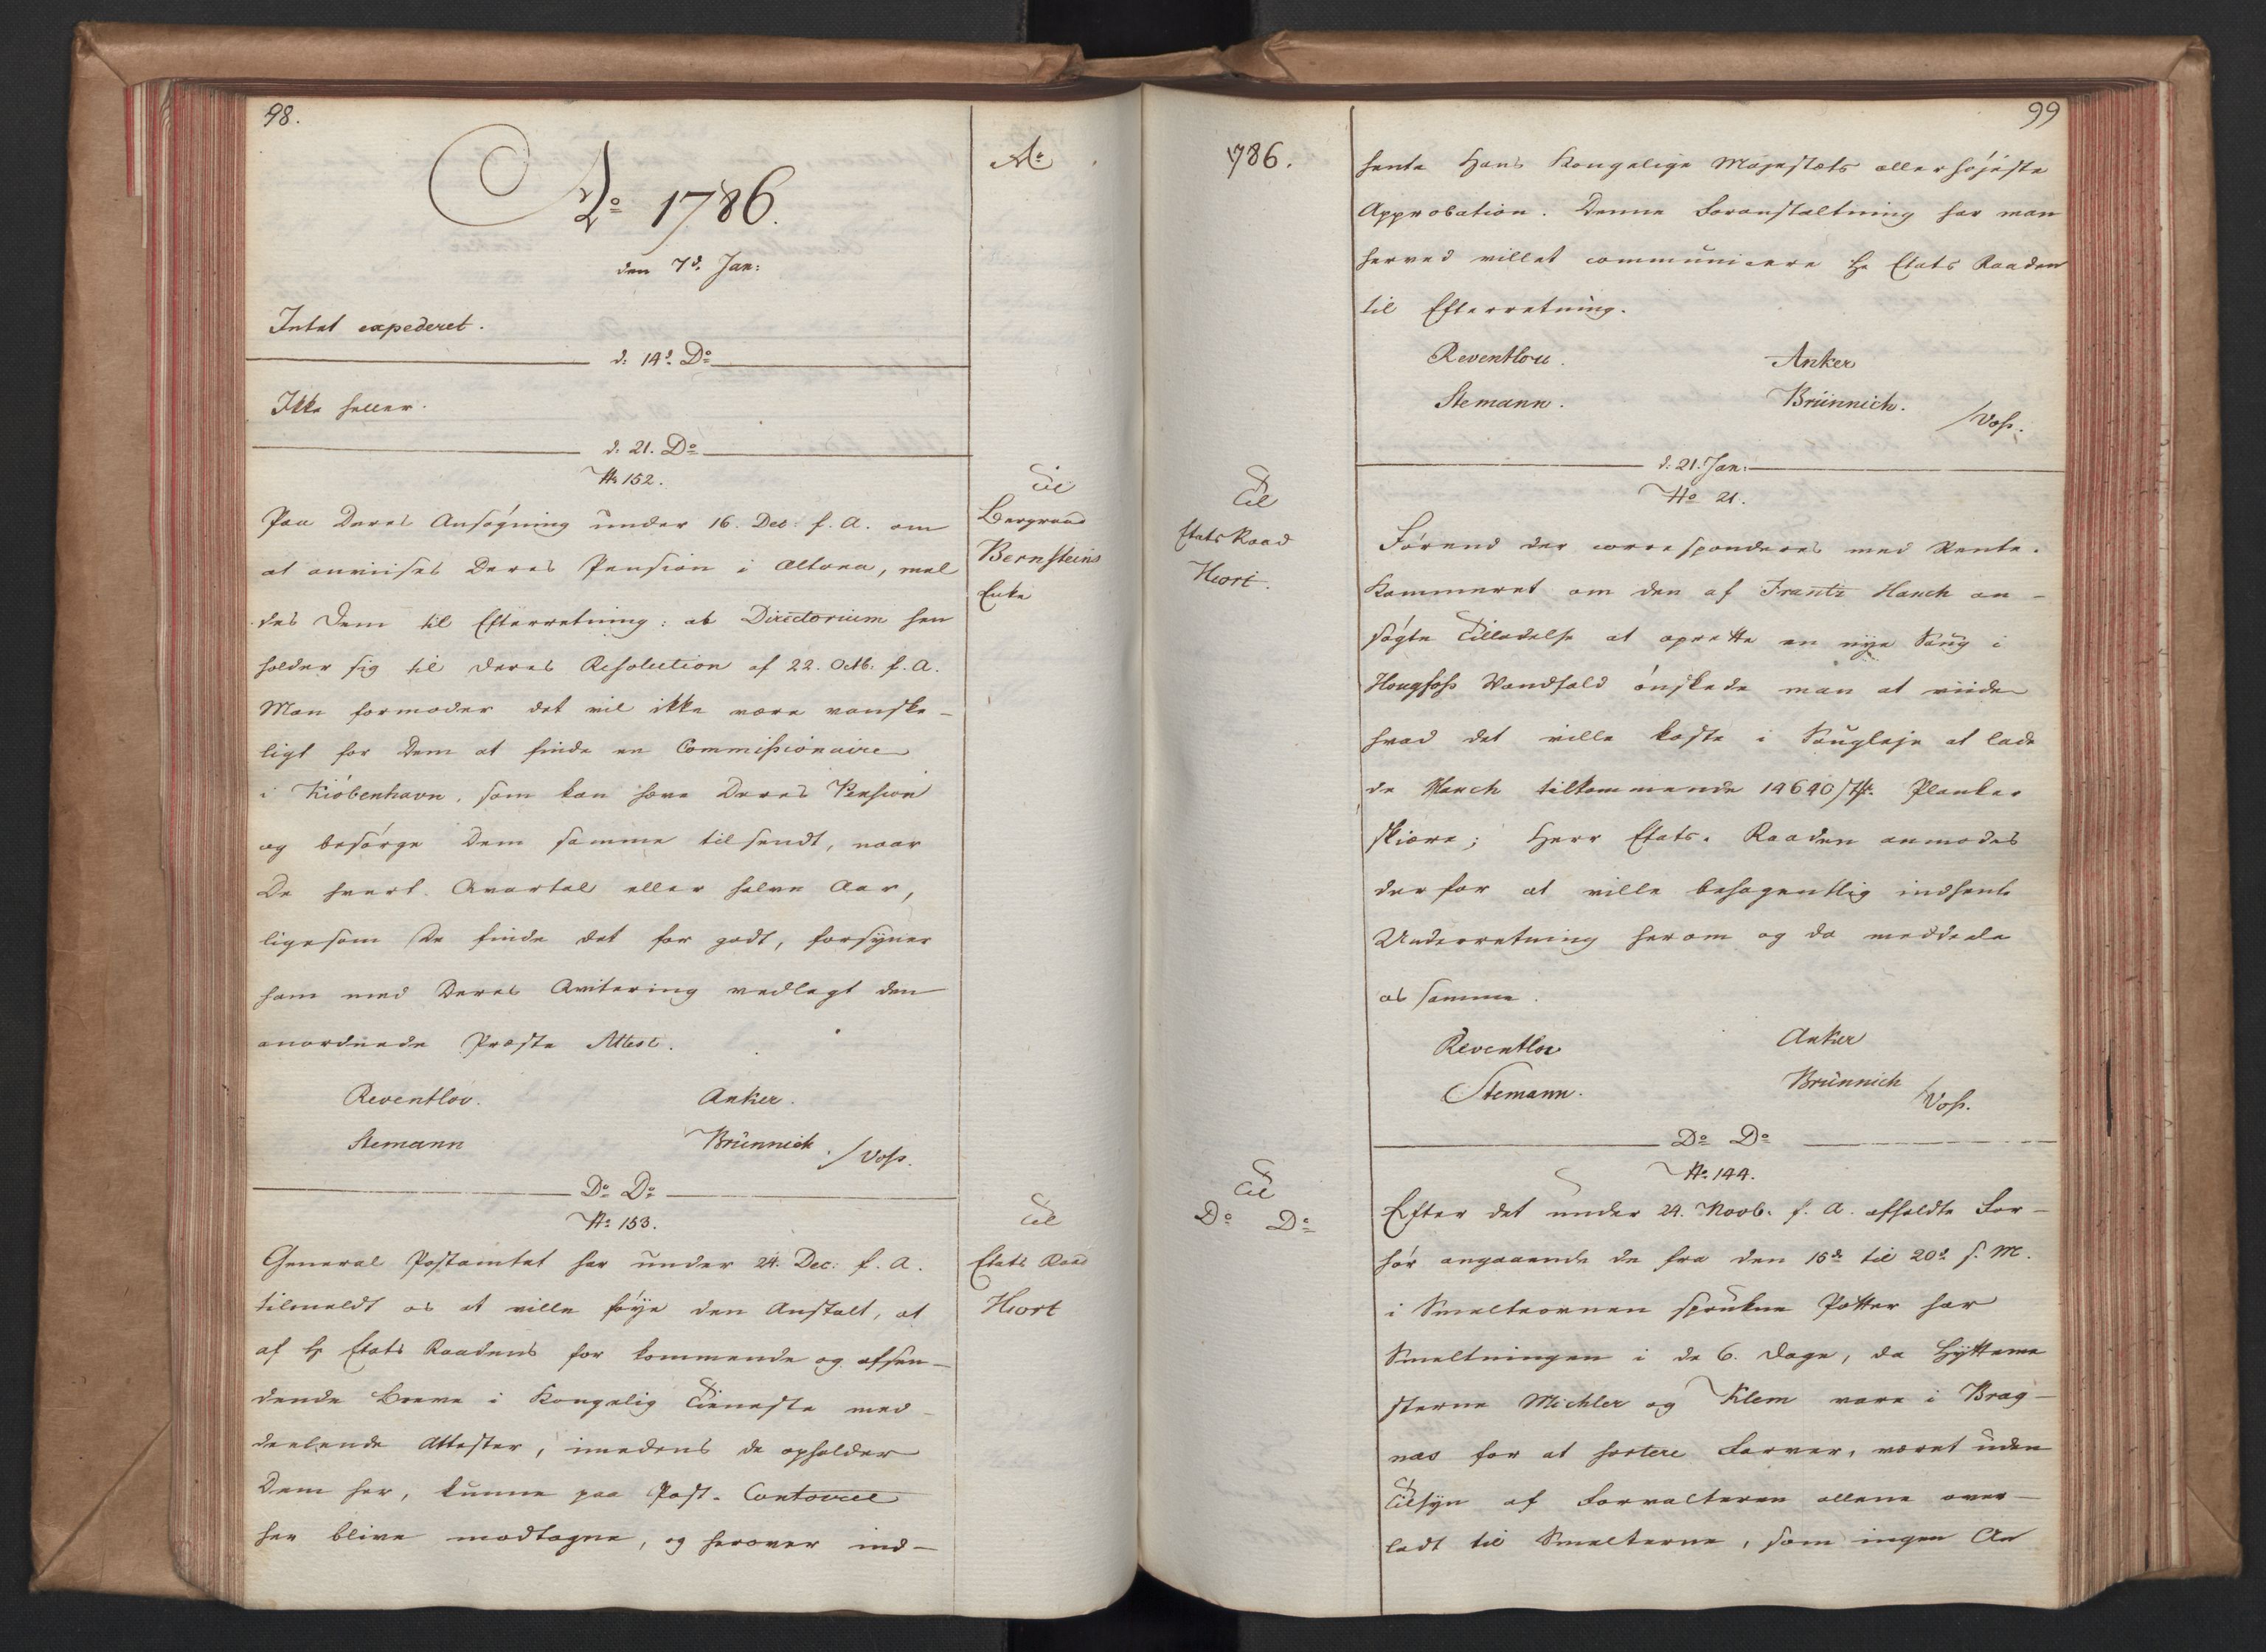 98.
Aº 1786.
den 7d. Jan:
Intet expederet.
d: 14d. Dº
Ikke heller.
d: 21. Dº
Nº 152.
Til
Bergraad
Bernsteins
Enke
Paa Deres Ansøgning under 16. Dec: f. A. om
at anviises Deres Pension i Altona, mel
des Dem til Efterretning: at Directorium hen
holder sig til deres Resolution af 22. Octb: f. A.
Man formoder det vil ikke være vanske-
ligt for Dem at finde en Commissionaire
i Kiöbenhavn, som kan hæve Deres Pension
og besørge Dem samme tilsendt, naar
De hvert Qvartal eller halve Aar,
ligesom De finde det for godt, forsyner
ham med Deres Qvitering vedlagt den
anordnede Præste Attest.
Reventlov. Anker.
Stemann Brünnich /Voss.
Dº Dº
Nº 153.
Til
Etats Raad
Hiort
General Postamtet har under 24. Dec: f. A.
tilmeldt os at ville føye den Anstalt, at
af Hr Etats Raadens for kommende og afsen-
dende Breve i Kongelig Tieneste med-
deelende Attester, imedens de opholder
Dem her, kunne paa Post-Contoiret
her blive modtagne, og herover ind-
Aº
1786.
99
hente Hans Kongelige Majestæts allerhøjeste
Approbation. Denne Foranstaltning har man
herved villet communicere Hr Etats Raaden
til Efterretning.
Reventlou. Anker
Stemann. Brünnich. /Voss.
d: 21. Jan:
Nº 21.
Til
Etats Raad
Hiort.
Førend der corresponderes med Rente-
Kammeret om den af Frantz Hauch an-
søgte Tilladelse at oprette en nye Saug i
Hougfoss Vandfald ønskede man at viide
hvad det ville koste i Saugleje at lade
de Hauch tilkommende 14640 Planker
skiære; Herr Etats-Raaden anmodes
derfor at ville behagentlig indhente
Underretning herom og da meddeele
os samme.
Reventlov Anker
Stemann. Brünnich /Voss.
Dº Dº
Nº 144.
Til
Dº Dº
Efter det under 24. Novb: f. A. afholdte For-
hør angaaende de fra den 15d. til 20d. s. M.
i Smelteovnen sprukne Potter har
Smeltningen i de 6. Dage, da Hytteme
sterne Michler og Klem vare i Brag-
næs for at sortere Farver, været uden
Tilsyn af Forvalteren allene over-
ladt til Smelterne, som ingen An